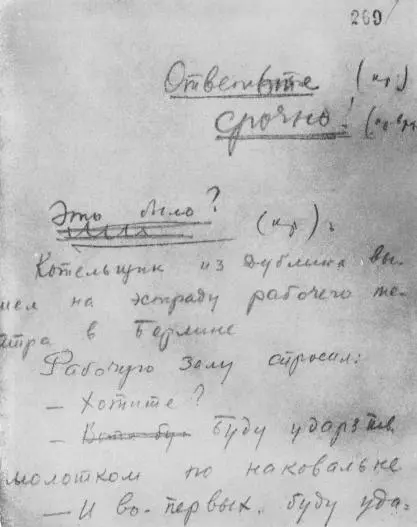 269
Ответьте (кр)
срочно!
Это было?
(кр).
Котельщик из Дублина вы-
шел на эстраду рабочего те-
атра в Берлине
Рабочую залу спросил:
— Хотите?
— Буду ударять
молотком по наковальне
— И во-первых. буду уда-